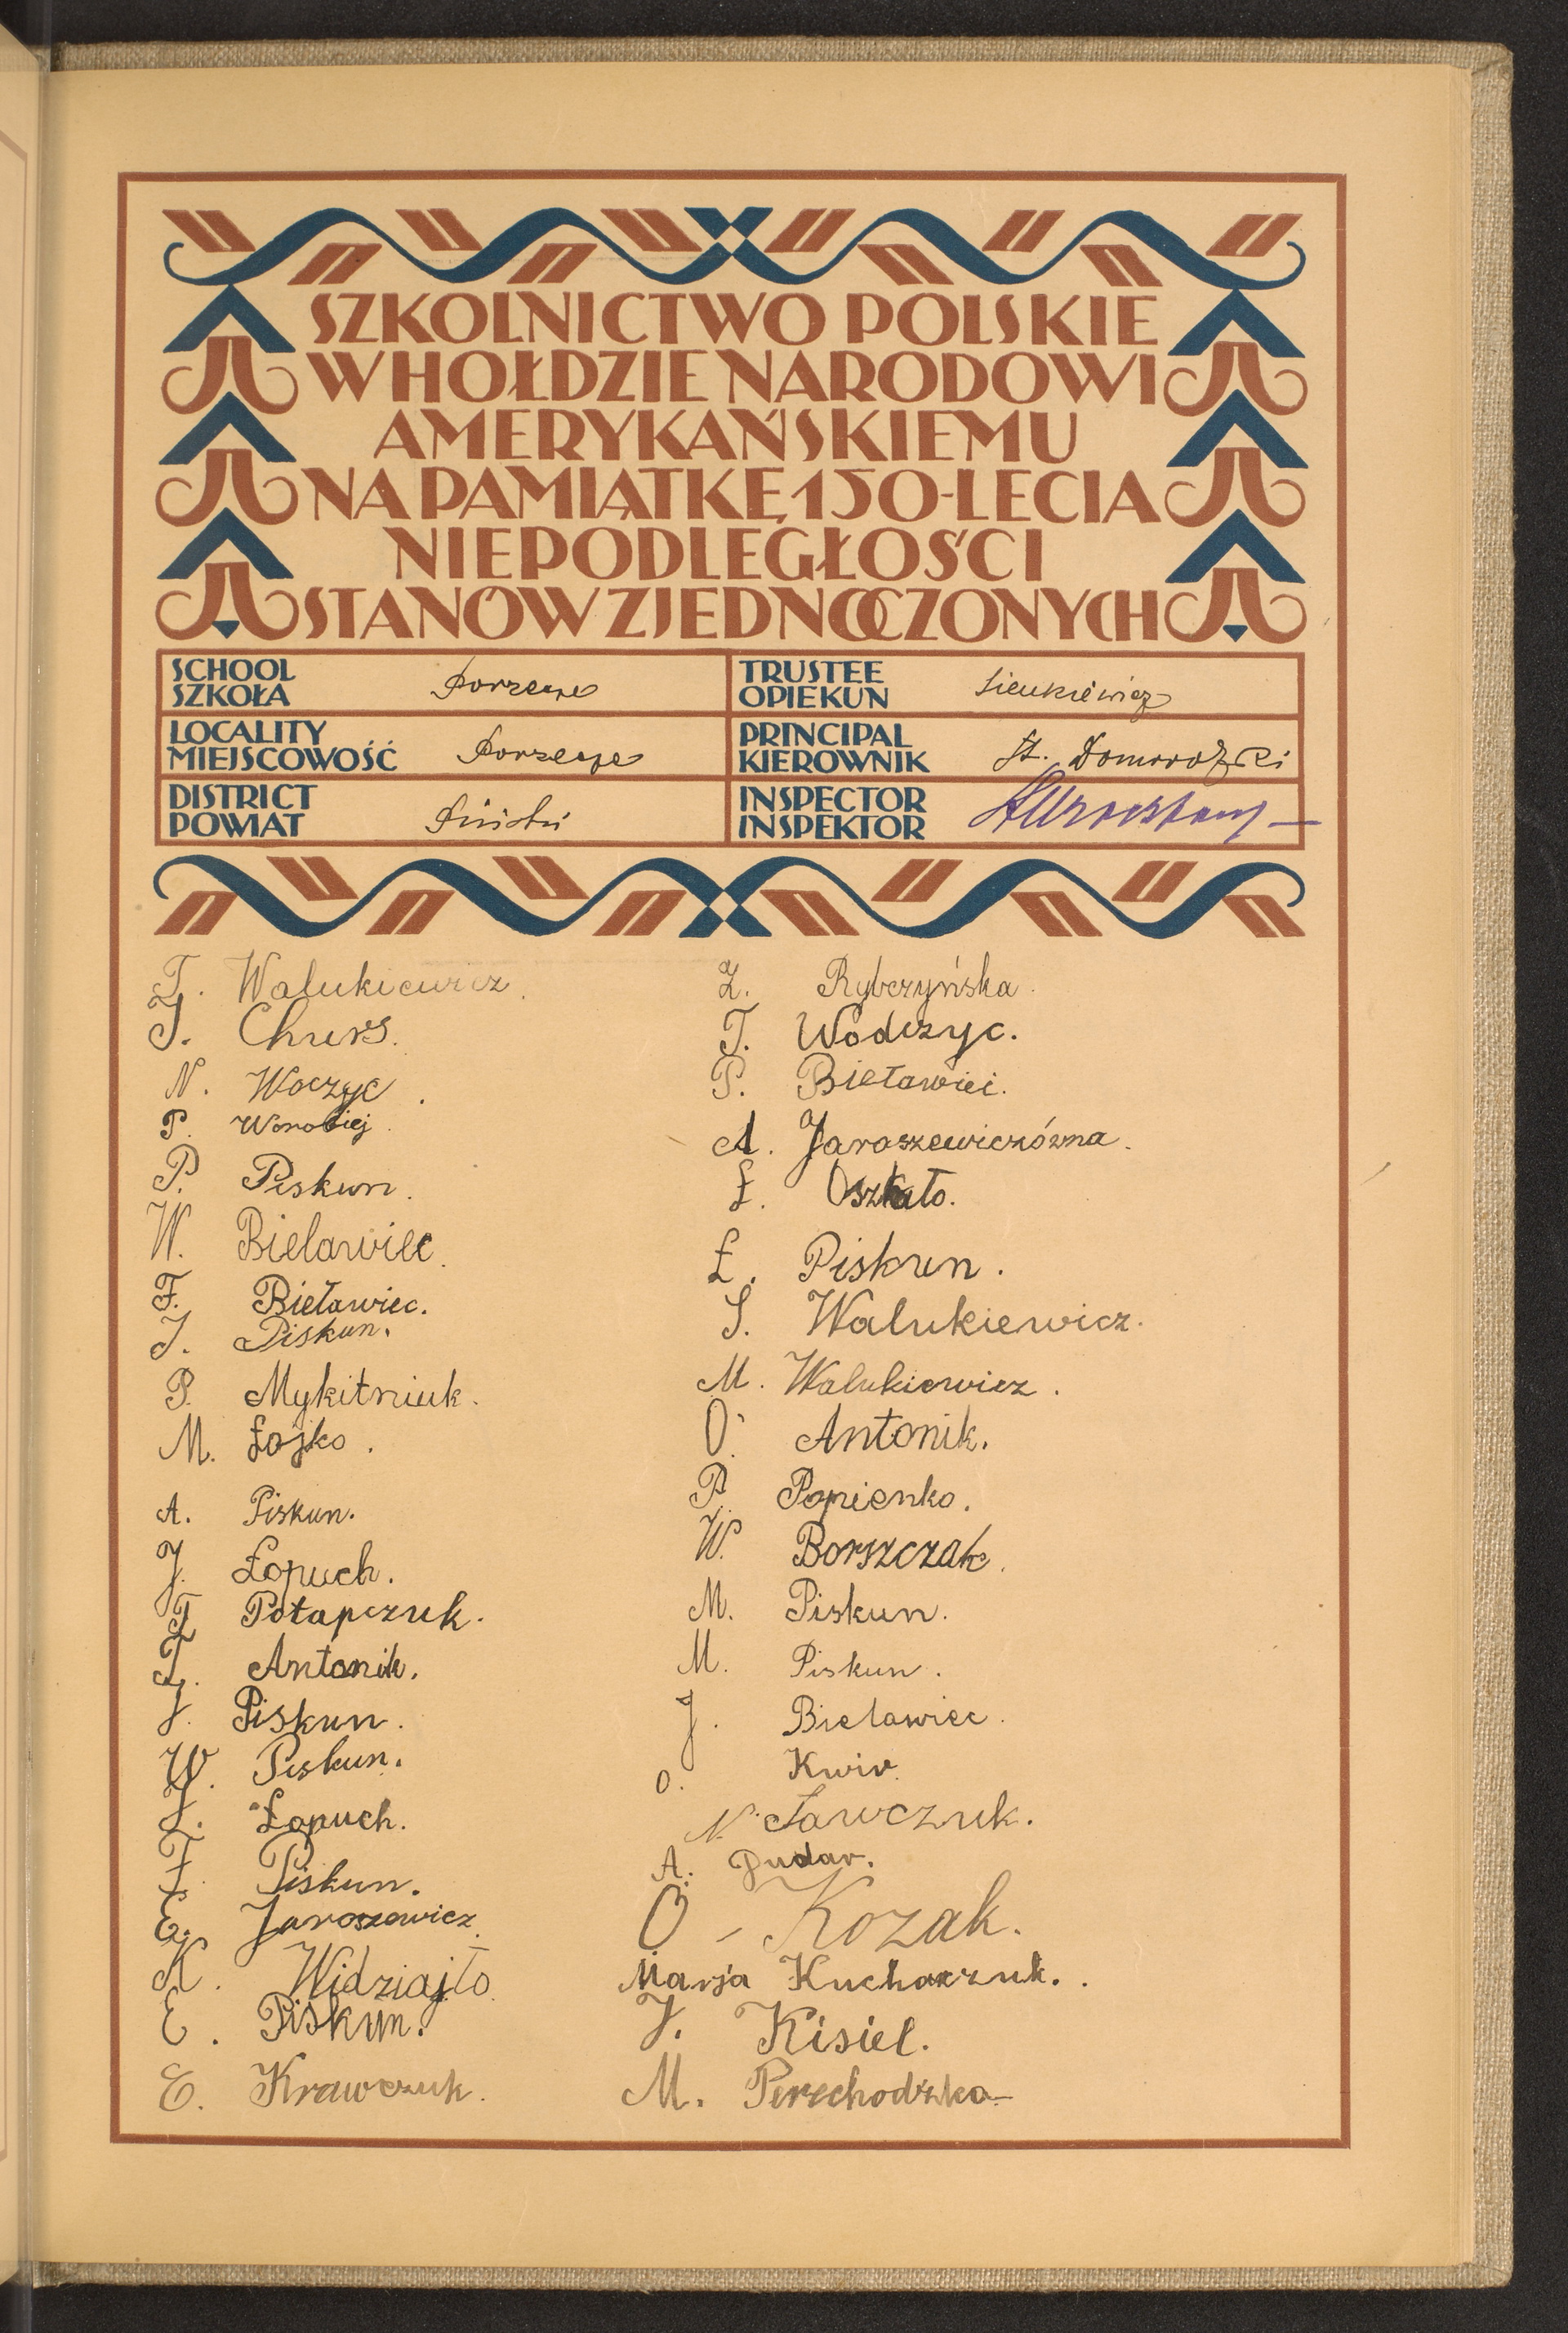 SZKOLNICTWO POLSKIE
W HOŁDZIE NARODOWI
AMERYKAŃSKIEMU
NA PAMIĄTKĘ 150-LECIA
NIEPODLEGŁOŚCI
STANÓW ZJEDNOCZONYCH
SCHOOL
SZKOŁA Porzecze
TRUSTEE
OPIEKUN Sienkiewicz
LOCALITY
MIEJSCOWOŚĆ Porzecze
PRINCIPAL
KIEROWNIK St. Domorodzki
DISTRICT
POWIAT Piński
INSPECTOR
INSPEKTOR
T. Walukiewicz.
J. Churs.
N. Woczyc.
P. Worobiej.
P. Piskun.
W. Bielawiec.
F. Bieławiec.
J. Piskun.
P. Mykitniuk.
M. Łojko.
A. Piskun.
J. Łopuch.
T. Potapczuk.
T. Antonik.
J. Piskun.
W. Piskun.
J. Łopuch.
F. Piskun.
E. Jaroszewicz.
K. Widziajło.
E. Piskun.
E. Krawczuk.
Z. Rybczyńska.
T. Wodczyc.
P. Bieławiei.
A. Jaroszewiczówna.
Ł. Oszkało.
Ł. Piskun.
S. Walukiewicz.
M. Walukiewicz.
O. Antonik.
P. Popienko.
W. Borszczak.
M. Piskun.
M. Piskun.
J. Bielawiec.
O. Kwir.
N. Sawczuk.
A. Dudar.
O - Kozak.
Marja Kucharzuk.
J. Kisiel.
M. Perechodźka